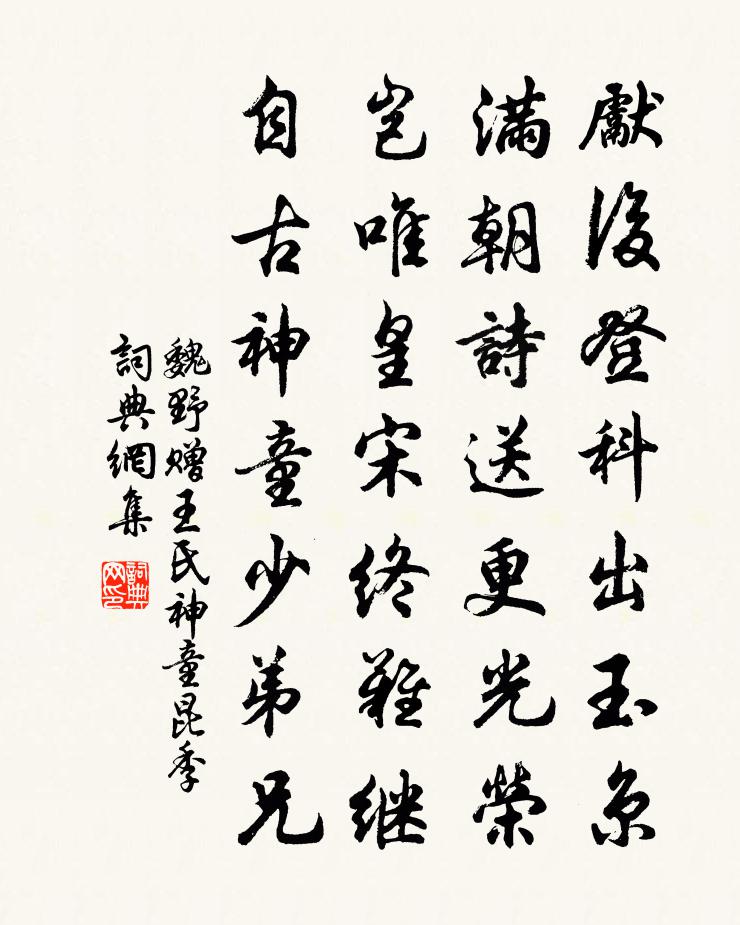 獻後登科出玉京
滿朝詩送更光榮
豈唯皇宋終難継
自古神童少弟兄
魏野贈王氏神童昆季
詞典網集
詞典网印